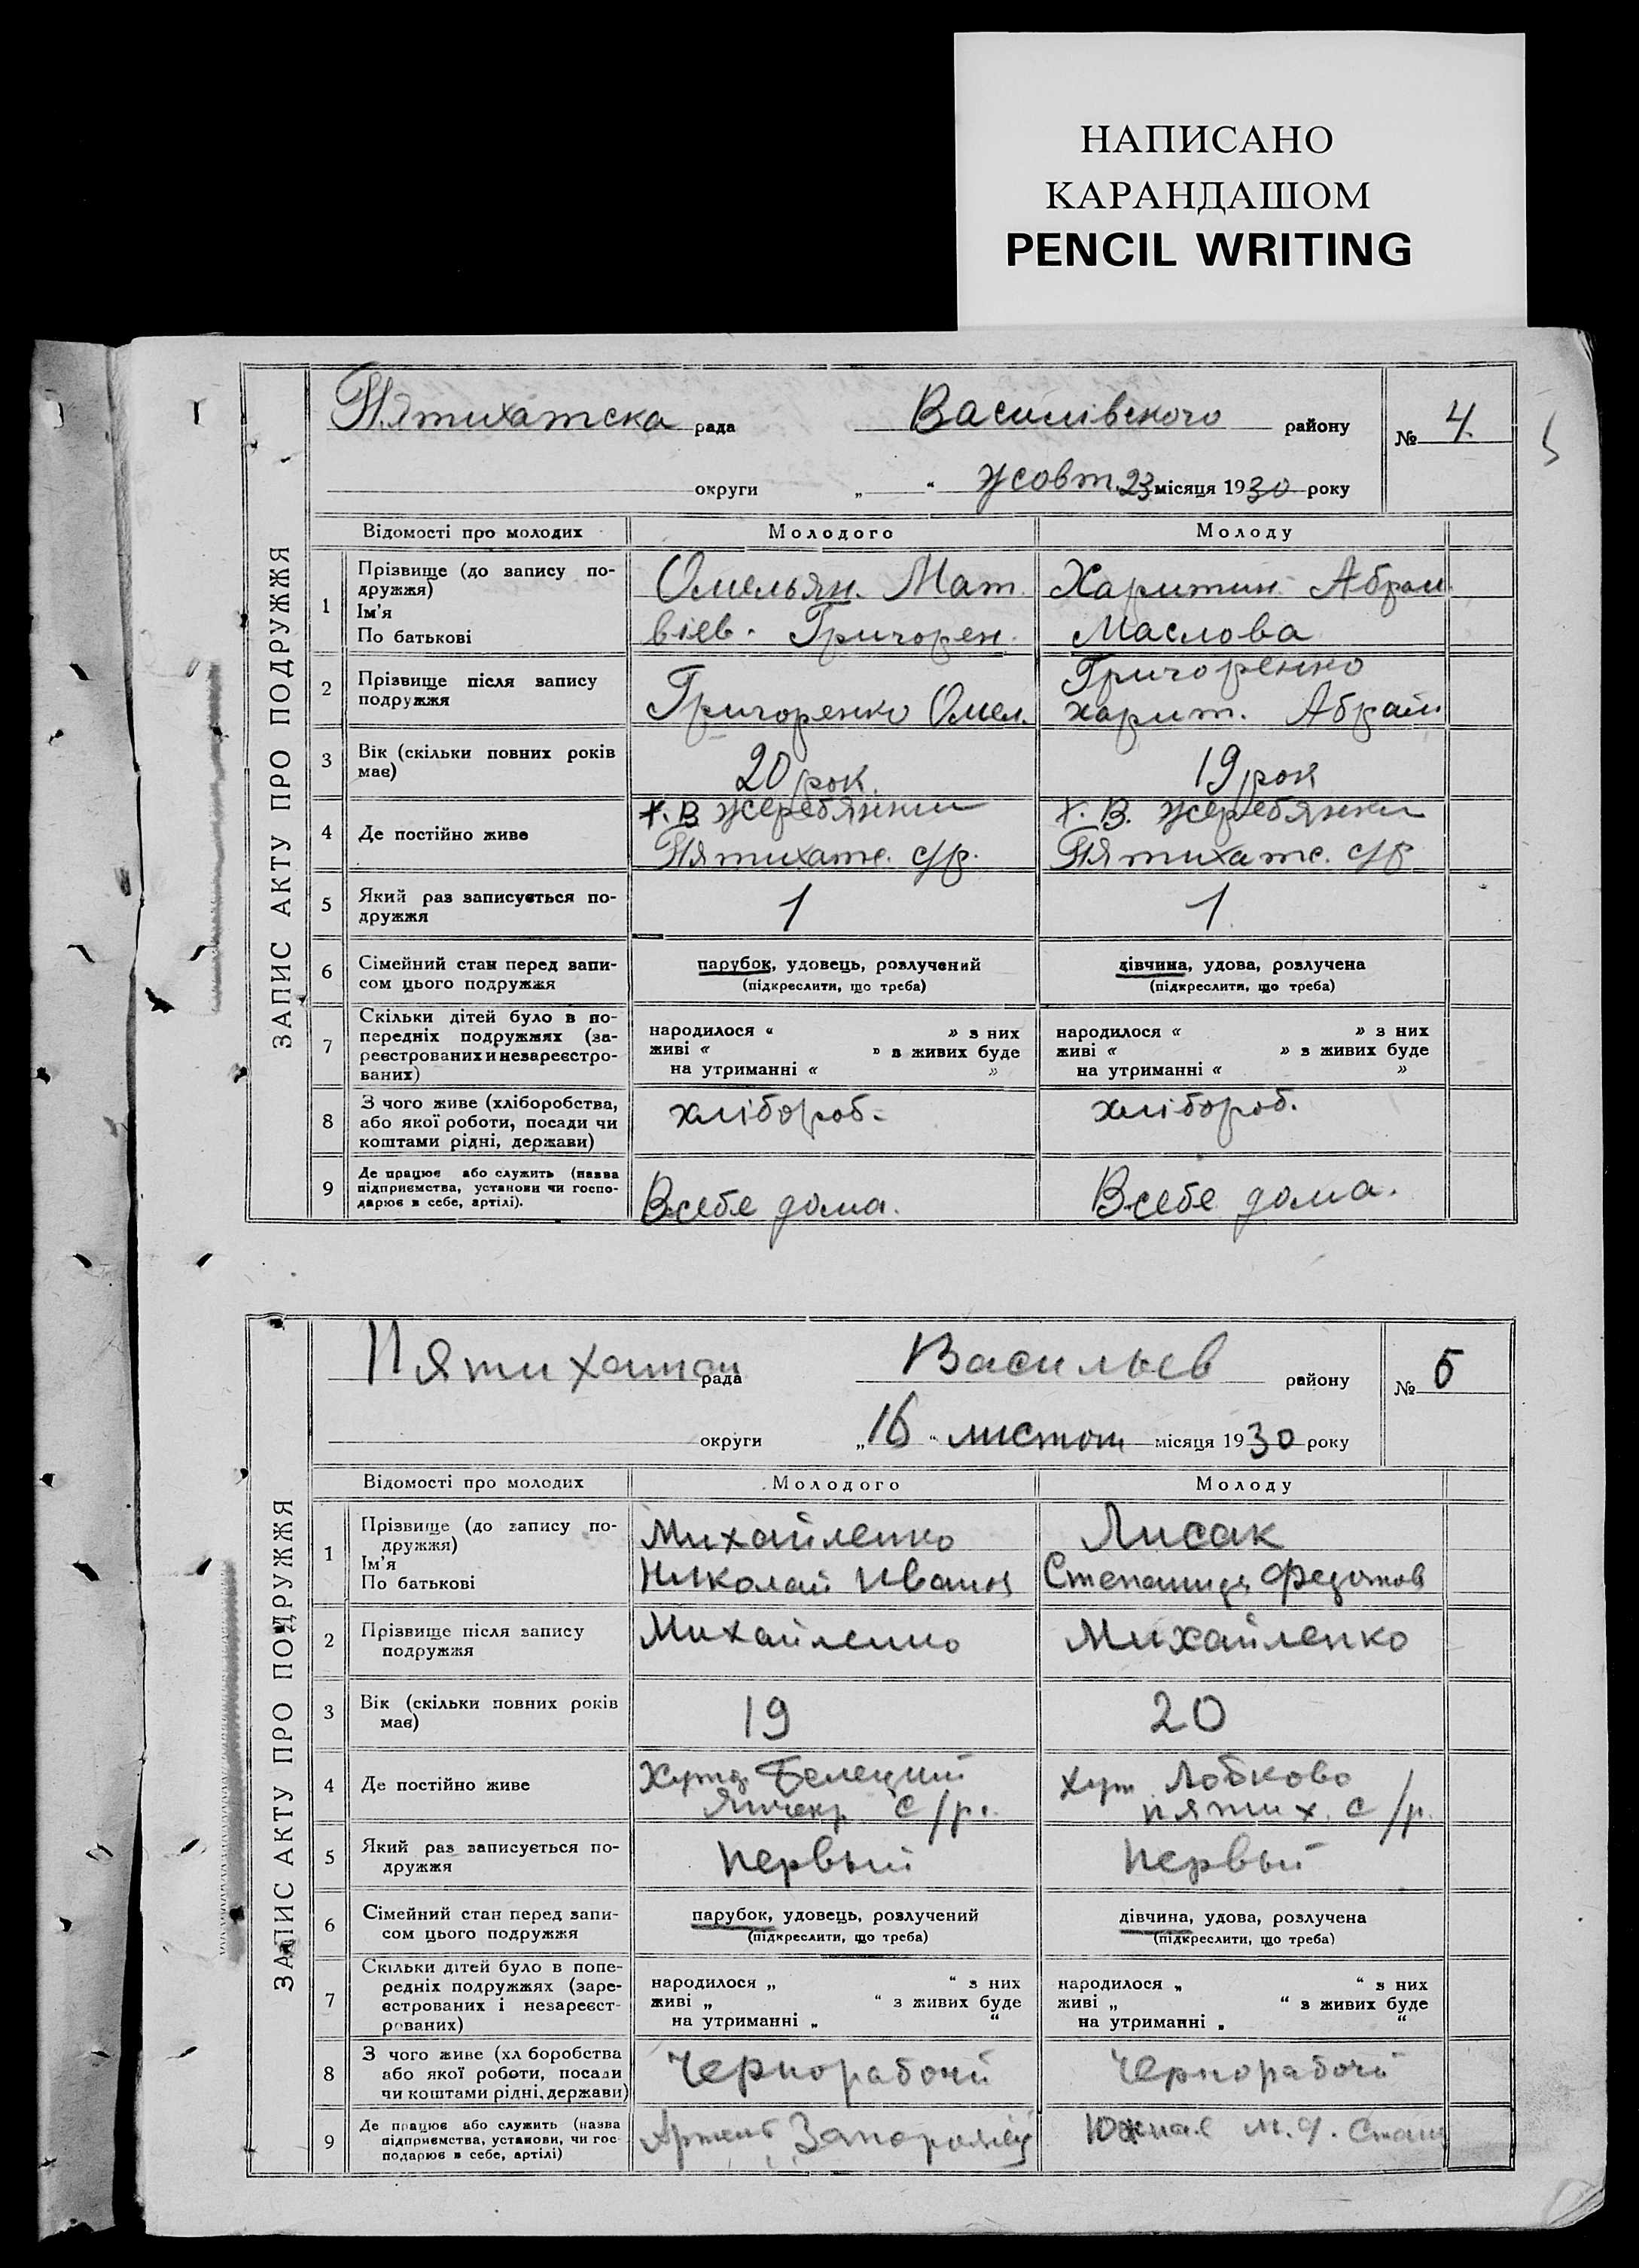 НАПИСАНО
КАРАНДАШОМ
PENCIL WRITING
ЗАПИС АКТУ ПРО ПОДРУЖЖЯ
Пятихатска рада Василівского району № 4
округи „ “ жовт. 23 місяця 1930 року
Відомості про молодих Молодого Молоду
1 Прізвище (до запису по-
дружжя)
Ім'я
По батькові
Омельян. Мат
віев. Григорен.
Харитин Абрам
Маслова
2 Прізвище після запису
подружжя
Григоренко Омел.
Григоренко
харит. Абрам
3 Вік (скільки повних років
має)
20 рок.
19 рок
4 Де постійно живе
х. В Жеребянки
Пятихатс. с/р.
х. В. Жеребянки
Пятихатс. с/р
5 Який раз записується по-
дружжя
1
1
6 Сімейний стан перед запи-
сом цього подружжя
парубок, удовець, розлучений
(підкреслити, що треба)
дівчина, удова, розлучена
(підкреслити, що треба)
7 Скільки дітей було в по-
передніх подружжях (за-
реєстрованих и незареєстро-
ваних)
народилося « » з них
живі « » в живих буде
на утриманні « »
народилося « » з них
живі « » в живих буде
на утриманні « »
8 З чого живе (хліборобства,
або якої роботи, посади чи
коштами рідні, держави)
хлібороб.
хлібороб.
9 Де працює або служить (назва
підприємства, установи чи госпо-
дарює в себе, артілі).
В себе дома.
В себе дома.
ЗАПИС АКТУ ПРО ПОДРУЖЖЯ
Пятихатсн рада Васильев району № 5
округи „16“ листоп місяця 1930 року
Відомості про молодих Молодого Молоду
1 Прізвище (до запису по-
дружжя)
Ім'я
По батькові
Михайленко
Николай Иванов
Лисак
Степанида Федотов
2 Прізвище після запису
подружжя
Михайленко
Михайленко
3 Вік (скільки повних років
має)
19
20
4 Де постійно живе
Хутор Белецкий
с/р.
хут. Лобково
пятих. с/р.
5 Який раз записується по-
дружжя
первый
первый
6 Сімейний стан перед запи-
сом цього подружжя
парубок, удовець, розлучений
(підкреслити, що треба)
дівчина, удова, розлучена
(підкреслити, що треба)
7 Скільки дітей було в попе-
редніх подружжях (заре-
єстрованих і незареєст-
рованих)
народилося „ “ з них
живі „ “ з живих буде
на утриманні „ “
народилося „ “ з них
живі „ “ в живих буде
на утриманні „ “
8 З чого живе (хл боробства
або якої роботи, посади
чи коштами рідні, держави)
Чернорабочй
Чернорабочй
9 Де працює або служить (назва
підприємства, установи, чи гос-
подарює в себе, артілі)
Артель Запорожец
Южная М.